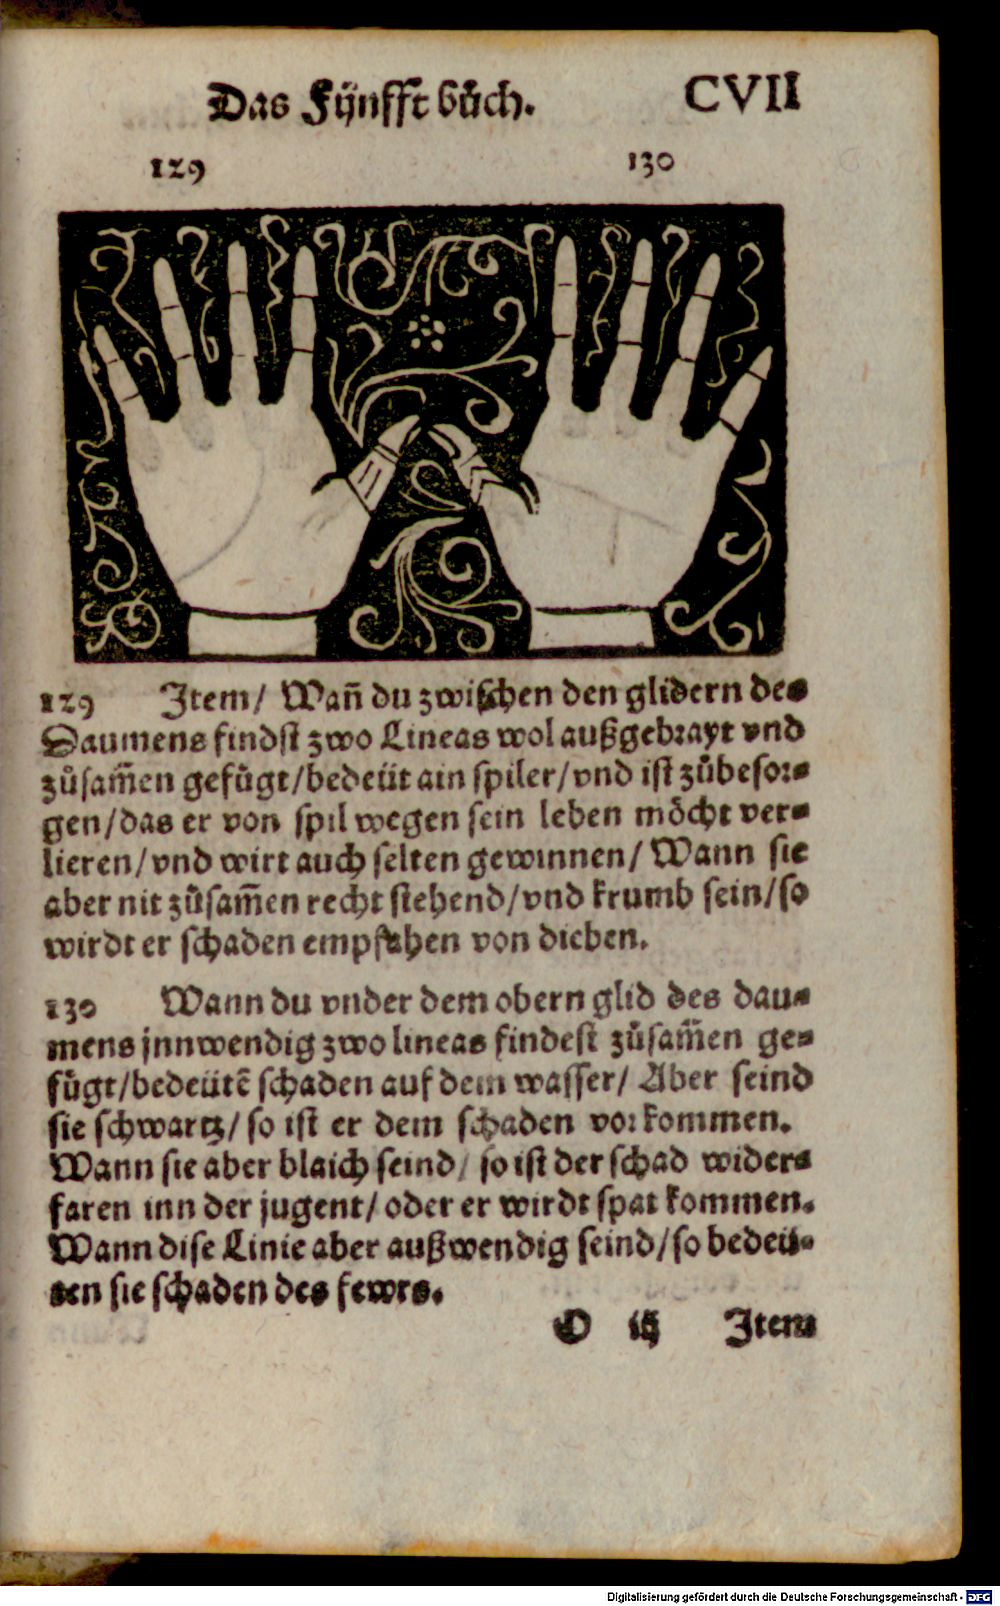 Das Fÿnfft bůch. CVII
129 130
129 Item/ Wañ du zwischen den glidern des
Daumens findst zwo Lineas wol außgebrayt vnd
zůsam̃en gefůgt/bedeüt ain spiler/vnd ist zůbesor-
gen/das er von spil wegen sein leben möcht ver-
lieren/vnd wirt auch selten gewinnen/ Wann sie
aber nit zůsam̃en recht stehend/vnd krumb sein/so
wirdt er schaden empfahen von dieben.
130 Wann du vnder dem obern glid des dau-
mens jnnwendig zwo lineas findest zůsam̃en ge-
fůgt/bedeütẽ schaden auf dem wasser/ Aber seind
sie schwartz/ so ist er dem schaden vorkommen.
Wann sie aber blaich seind/ so ist der schad wider-
faren inn der jugent/ oder er wirdt spat kommen.
Wann dise Linie aber außwendig seind/so bedeü-
ten sie schaden des fewrs.
O iij Item
Digitalisierung gefördert durch die Deutsche Forschungsgemeinschaft - DFG